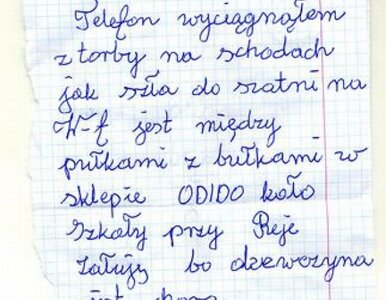 Telefon wyciągnąłem
z torby na schodach
jak szła do szatni na
W-f jest między
pułkami z bułkami w
sklepie ODIDO koło
szkoły przy Reje
żałuję bo dzewczyna
jest chora